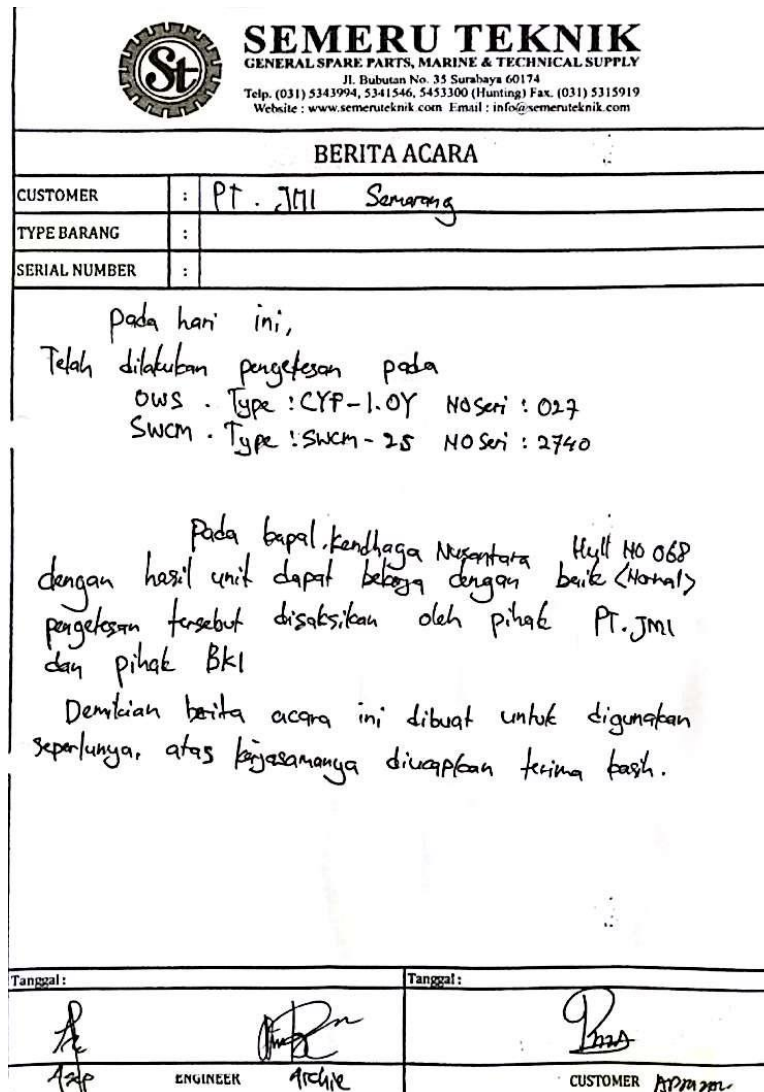 St
SEMERU TEKNIK
GENERAL SPARE PARTS, MARINE & TECHNICAL SUPPLY
Jl. Bubutan No. 35 Surabaya 60174
Telp. (031) 5343994, 5341546, 5453300 (Hunting) Fax. (031) 5315919
Website : www.semeruteknik.com Email : info@semeruteknik.com
BERITA ACARA
CUSTOMER : PT. JMI Semarang
TYPE BARANG :
SERIAL NUMBER :
Pada hari ini,
Telah dilakukan pengetesan pada
OWS . Type : CYP-1.0Y NO Seri : 027
SWCM . Type : SWCM-25 NO Seri : 2740
Pada kapal. Kendhaga Nusantara Hull NO 068
dengan hasil unit dapat bekerja dengan baik <Normal>
pengetesan tersebut disaksikan oleh pihak PT. JMI
dan pihak BKI
Demikian berita acara ini dibuat untuk digunakan
seperlunya, atas kerjasamanya diucapkan terima kasih.
Tanggal : Tanggal :
ENGINEER Archie CUSTOMER